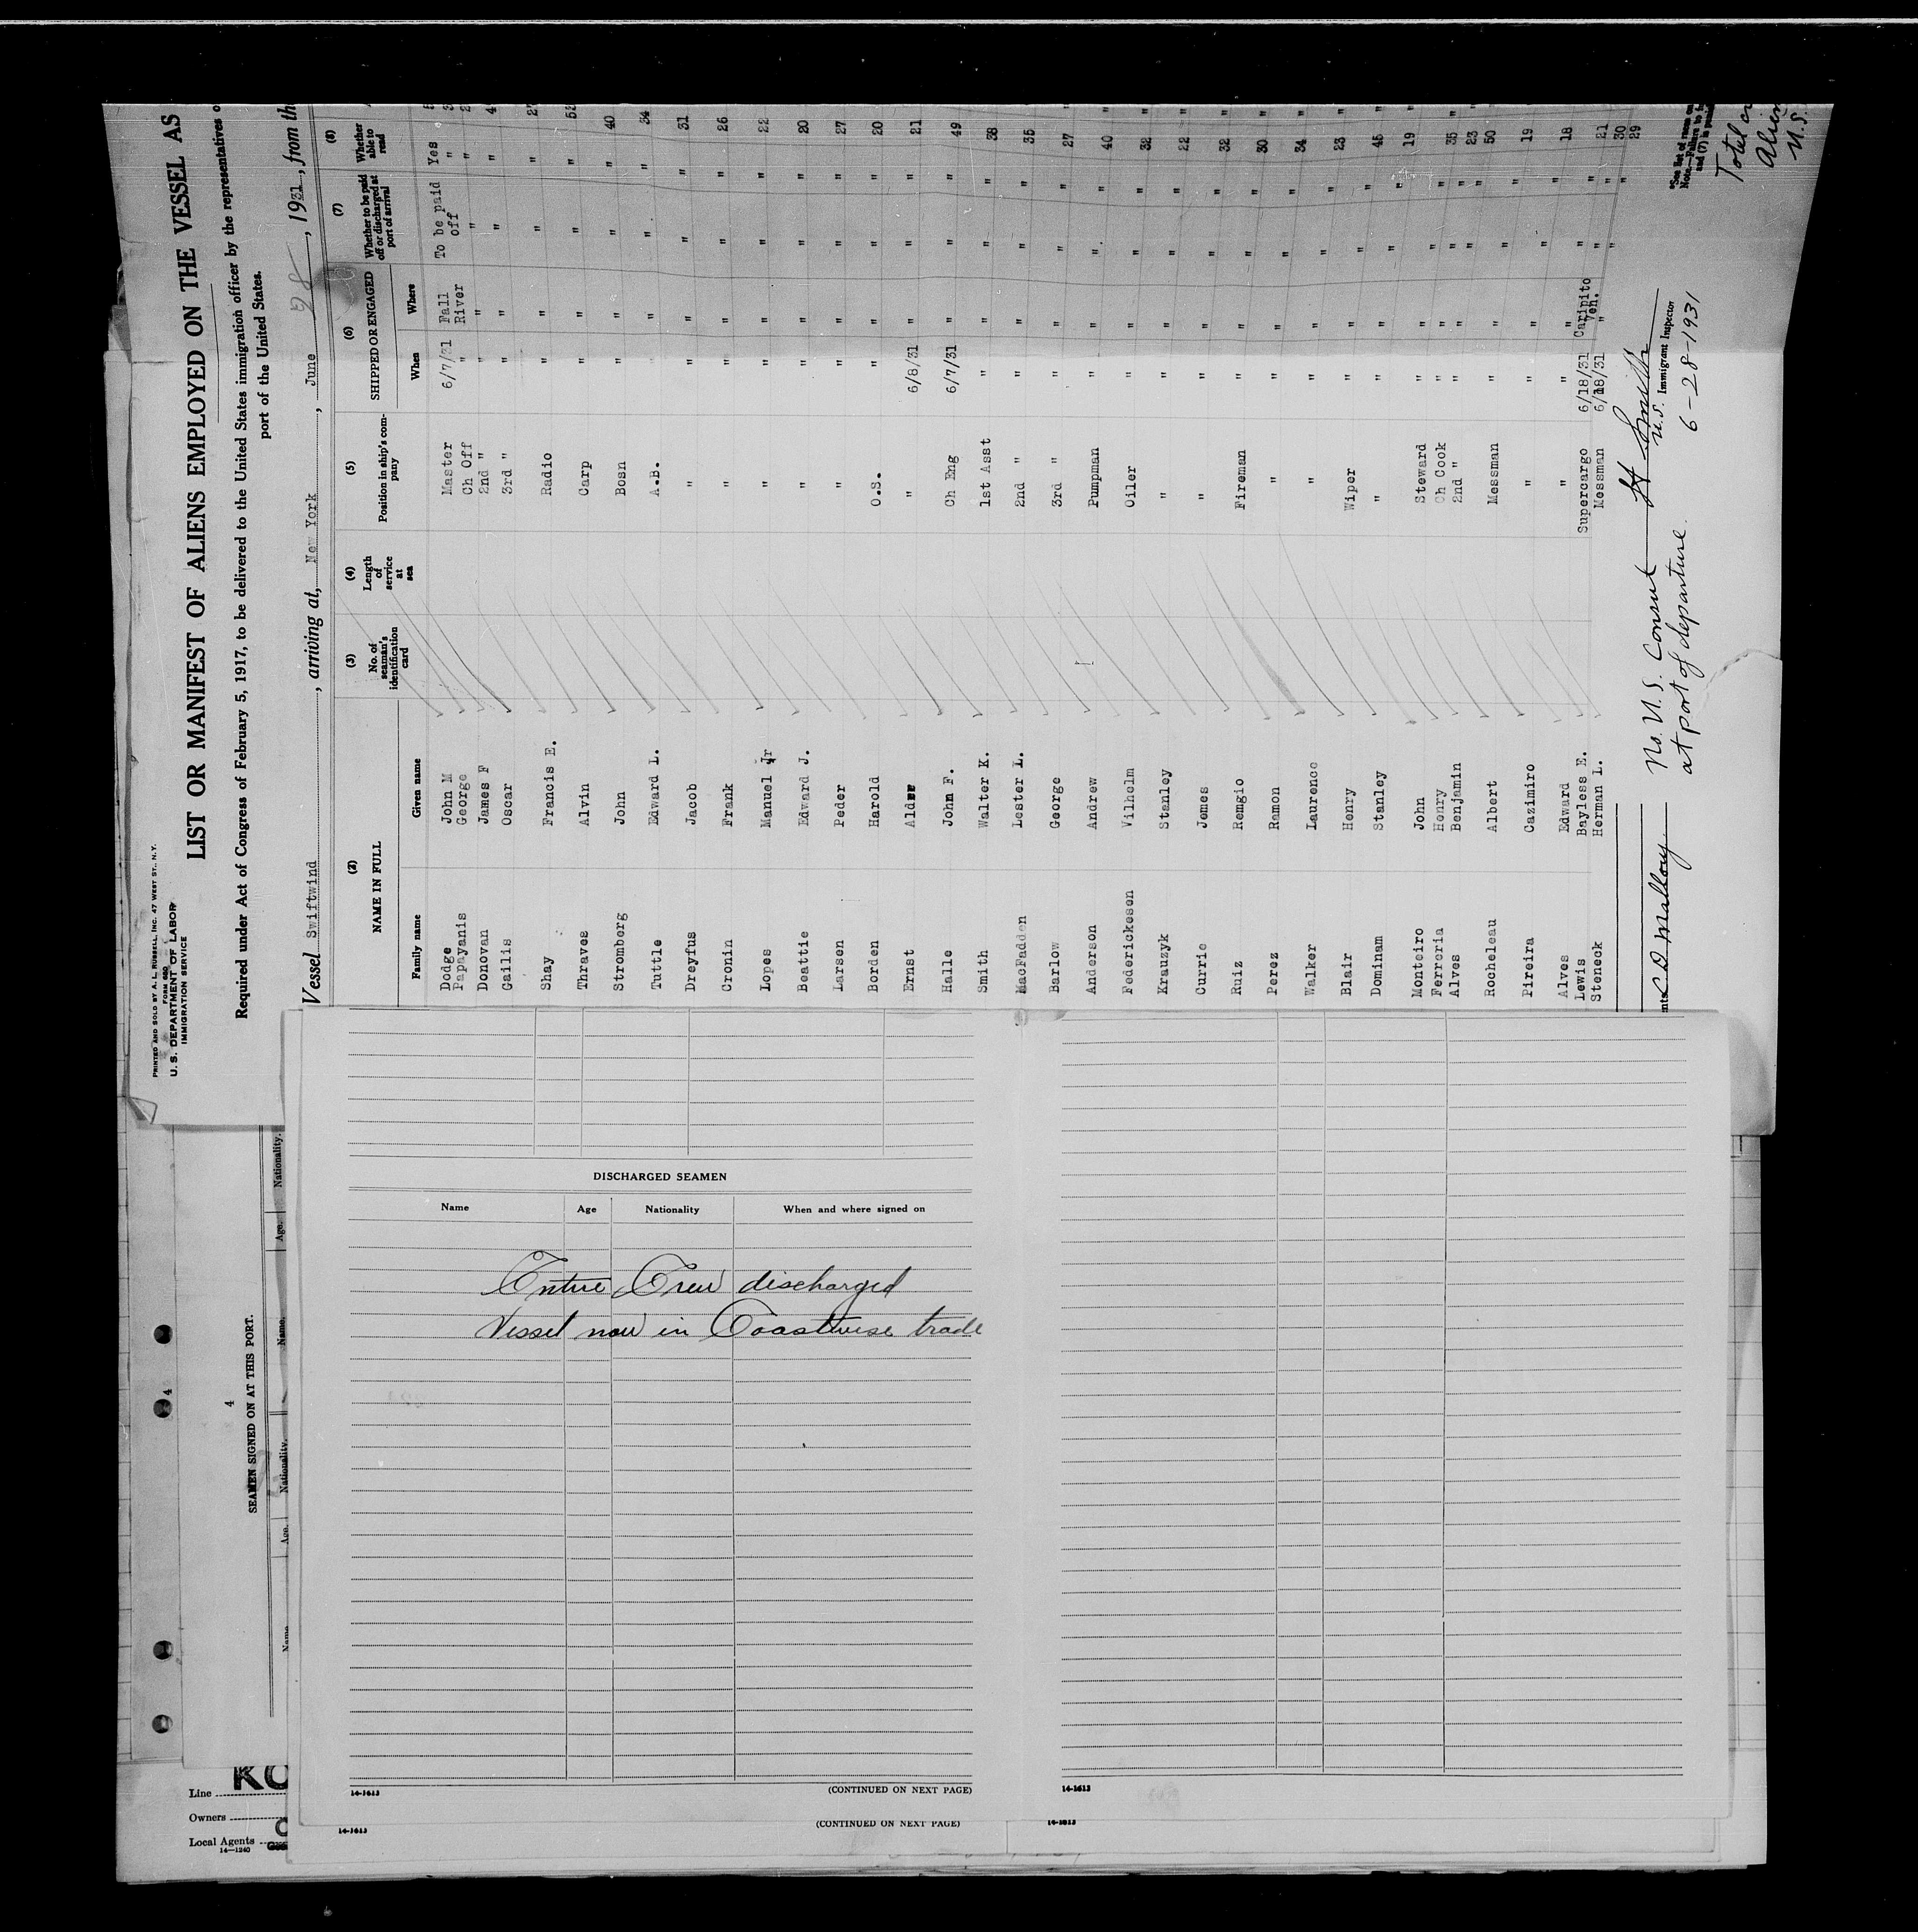 PRINTED AND SOLD BY A. L. RUSSELL, INC. 47 WEST ST., N.Y.
FORM 680
U. S. DEPARTMENT OF LABOR
IMMIGRATION SERVICE
LIST OR MANIFEST OF ALIENS EMPLOYED ON THE VESSEL AS
Required under Act of Congress of February 5, 1917, to be delivered to the United States immigration officer by the representatives o
port of the United States.
Vessel Swiftwind, arriving at, New York, June 28, 1931, from th
(2) (3) (4) (5) (6) (7) (8)
NAME IN FULL No. of seaman's identification card Length of service at sea Position in ship's company SHIPPED OR ENGAGED Whether to be paid off or discharged at port of arrival Whether able to read
Family name Given name When Where
Dodge John M Master 6/7/31 Fall River To be paid off Yes
Papayanis George Ch Off " " "
Donovan James F 2nd " " " " "
Gailis Oscar 3rd " " " " "
Shay Francis E. Radio " " " "
Thraves Alvin Carp " " " "
Stromberg John Bosn " " " " 40
Tuttle Edward L. A.B. " " " 34
Dreyfus Jacob " " " " " 31
Cronin Frank " " " " " 26
Lopes Manuel Jr " " " " " 22
Beattie Edward J. " " " " " 20
Larsen Peder " " " " " 27
Borden Harold O.S. " " " " 20
Ernst Alder " 6/8/31 " " " 21
Halle John F. Ch Eng 6/7/31 " " " 49
Smith Walter K. 1st Asst " " " " 38
MacFadden Lester L. 2nd " " " " " 35
Barlow George 3rd " " " " " 27
Anderson Andrew Pumpman " " " " 40
Federickesen Vilhelm Oiler " " " " 32
Krauzyk Stanley " " " " " 22
Currie Jemes " " " " " 32
Ruiz Remgio Fireman " " " " 30
Perez Ramon " " " " " 34
Walker Laurence " " " " " 23
Blair Henry Wiper " " " " 45
Dominam Stanley " " " " " 19
Monteiro John Steward " " " " 35
Ferreria Henry Ch Cook " " " " 23
Alves Benjamin 2nd " " " " " 50
Rocheleau Albert Messman " " " " 19
Pireira Cazimiro " " " " " 18
Alves Edward " " " " " 21
Lewis Bayless E. Supercargo 6/18/31 Caripito Ven. " " 30
Steneck Herman L. Messman 6/18/31 " " " 29
C D Mallory
No. U.S. Consul
at port of departure.
Smith
U.S. Immigrant Inspector
6-28-1931
Total
Alien
U.S.
4
SEAMEN SIGNED ON AT THIS PORT.
Name. Age. Nationality. Name. Age. Nationality.
4
DISCHARGED SEAMEN
Name Age Nationality When and where signed on
Entire Crew discharged
Vessel now in Coastwise trade
14-1613 (CONTINUED ON NEXT PAGE) 14-1613
14-1613 (CONTINUED ON NEXT PAGE) 14-1613
Line
Owners
Local Agents
14—1240